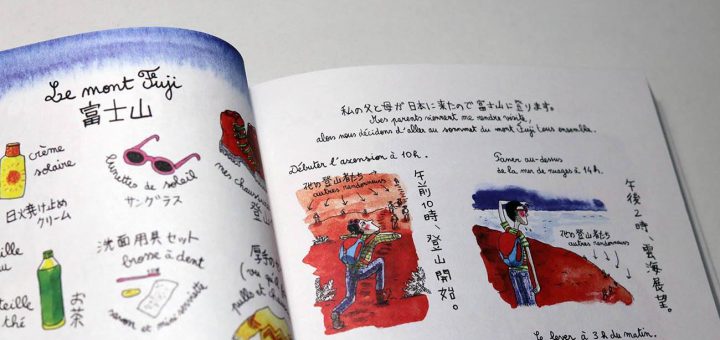 Le mont Fuji
富士山
crème
solaire
日火焼け止め
クリーム
Lunettes de soleil
サングラス
mes chaussures
登山
洗面用具セット
brosse à dent
savon et mini serviette
お茶
thé
私の父と母が日本に来たので富士山に登ります。
Mes parents viennent me rendre visite,
alors nous décidons d'aller au sommet du mont Fuji tous ensemble.
Débuter l'ascension à 10h.
他の登山者たち
autres randonneurs
午前10時、登山開始。
Passer au-dessus
de la mer de nuages à 14h.
他の登山者たち
autres randonneurs
午後2時、雲海展望。
Le lever à 3h du matin.